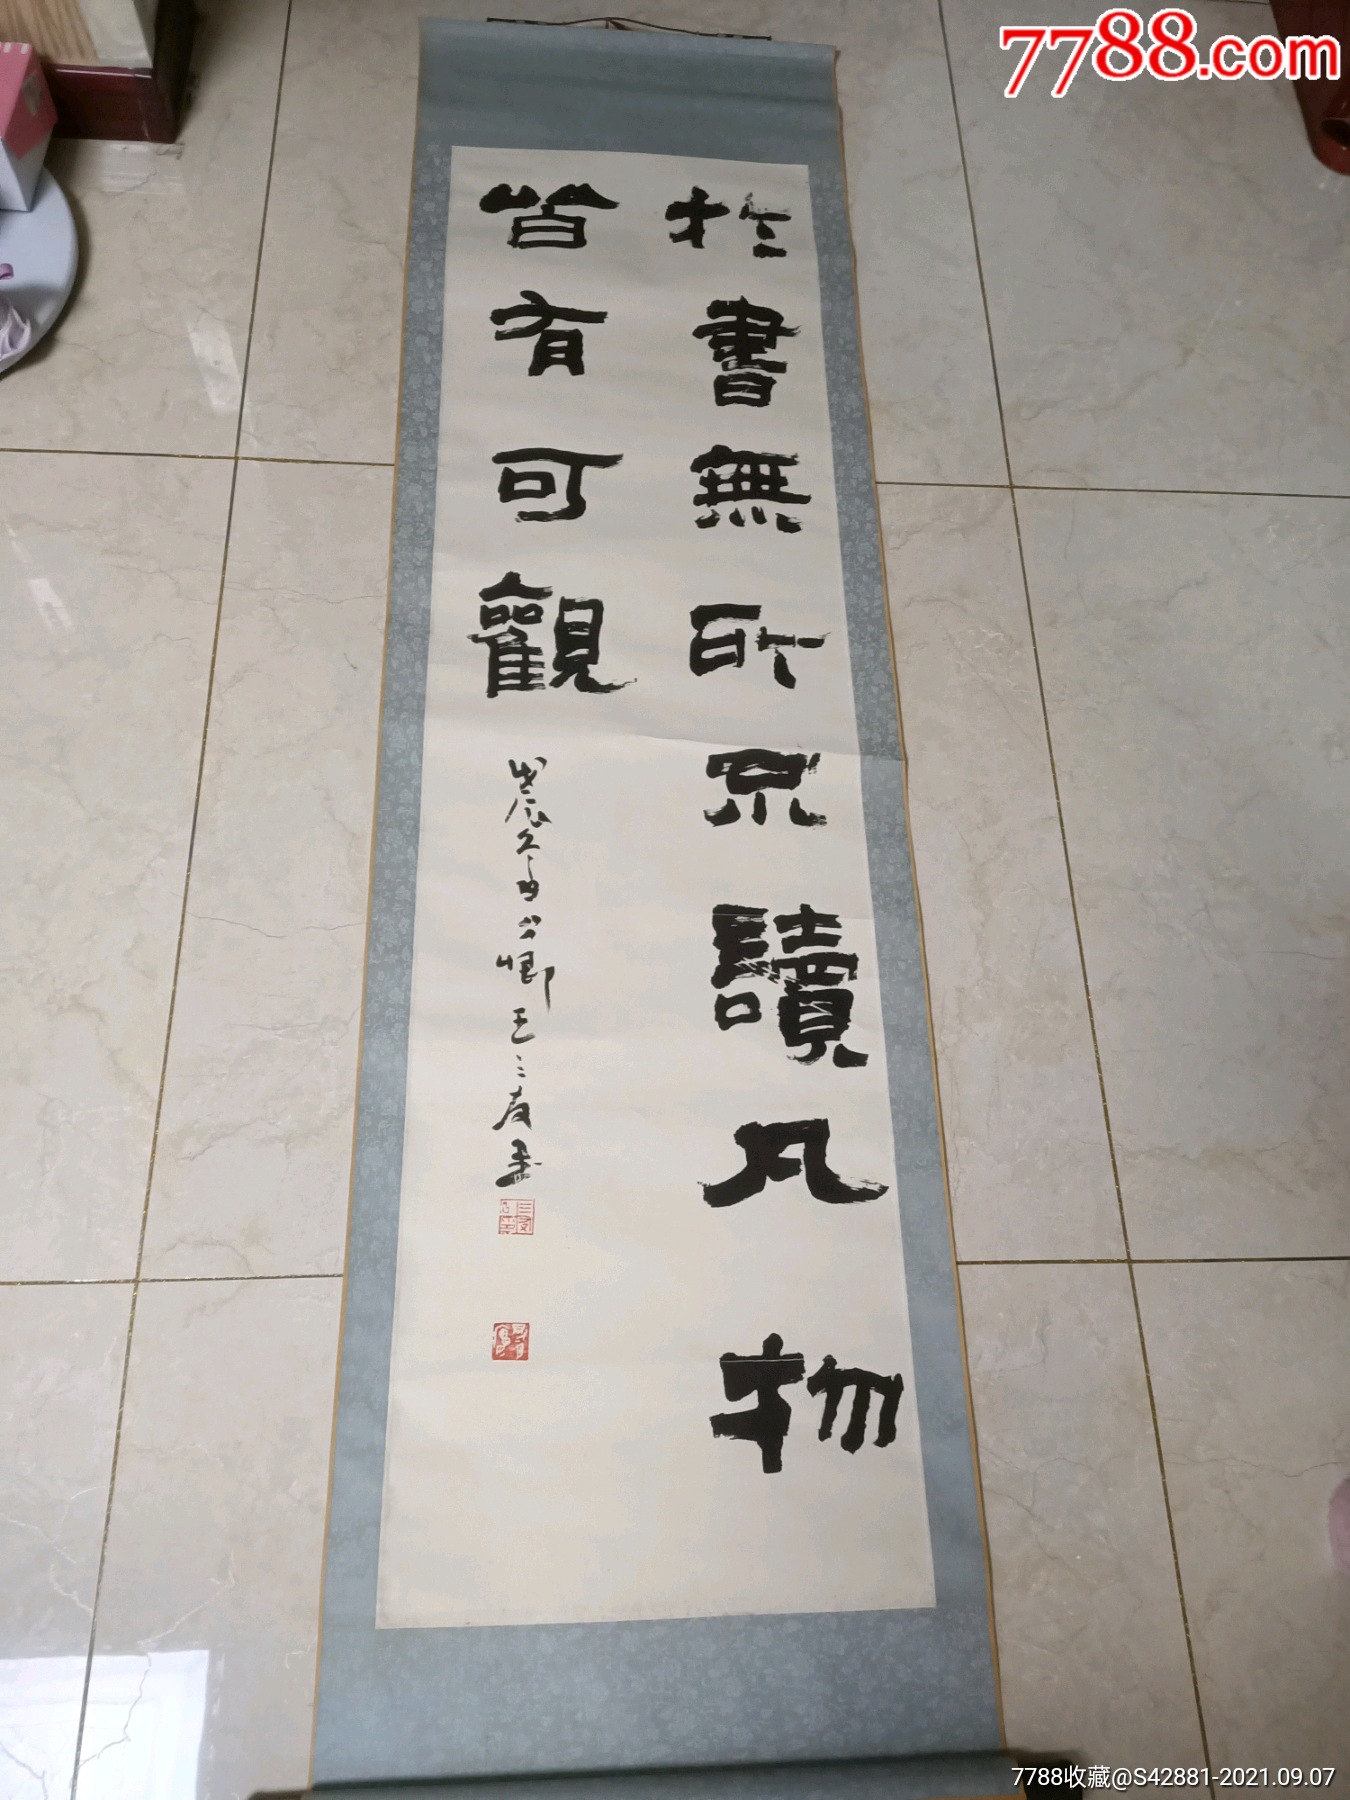 7788.com
於書無所不讀凡物
皆有可觀
戊辰冬月
王三友書
7788收藏@S42881-2021.09.07